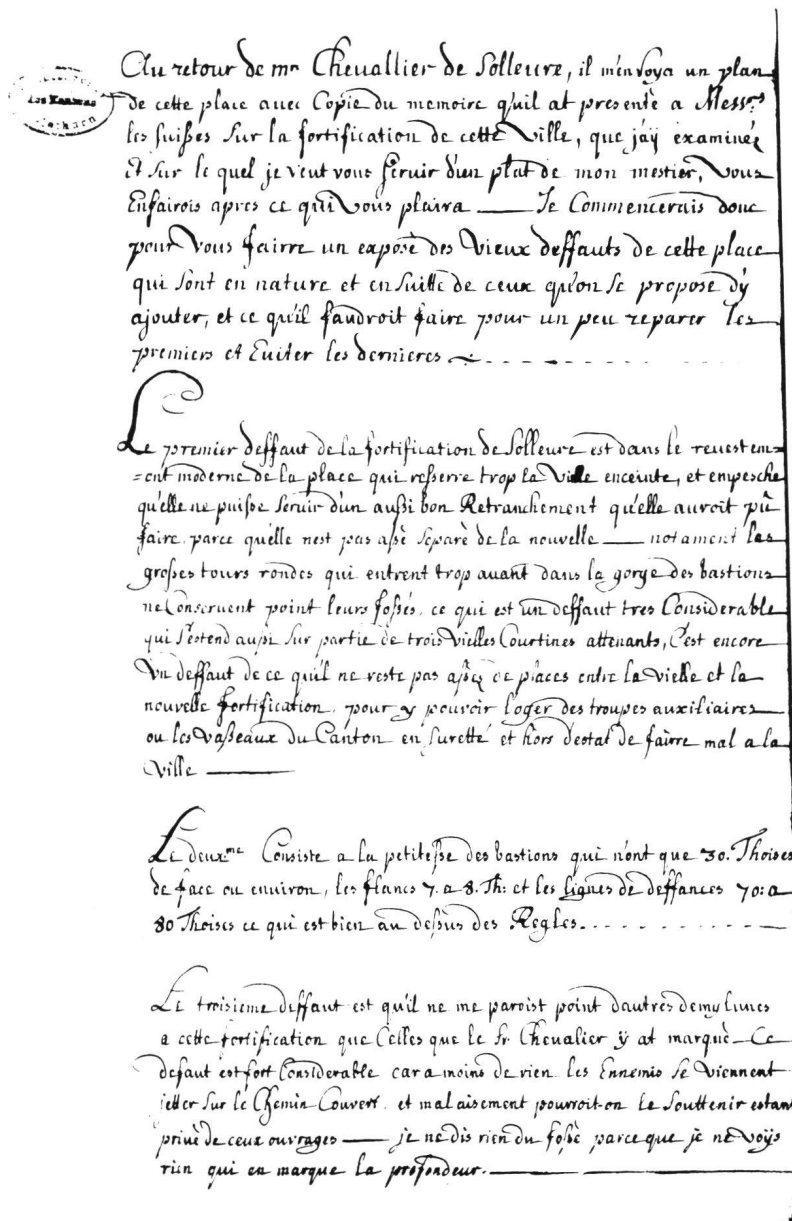 Au retour de mr Chevallier de Solleure, il m'envoya un plan
de cette place avec Copie du memoire qu'il at presentè a Messrs
des Kantons
les suisses sur la fortification de cette Ville, que j'ay examinéz
Et sur le quel je veut vous servir d'un plat de mon mestier, vous
Enfairois apres ce qui vous plaira — Je Commencerais donc
pour vous fairre un exposè des vieux deffauts de cette place
qui sont en nature et en suitte de ceux qu'on se propose d'y
ajouter, et ce qu'il faudroit faire pour un peu reparer les
premiers et Eviter les dernieres
Le premier deffaut de la fortification de Solleure est dans le revestem=
=ent moderne de la place qui resserre trop la Ville enceinte, et empesche
qu'elle ne puisse servir d'un aussi bon Retranchement qu'elle auroit pû
faire. parce qu'elle nest pas assè separè de la nouvelle — notament les
grosses tours rondes qui entrent trop avant dans la gorge des bastions
ne Conservent point leurs fossés, ce qui est un deffaut tres Considerable
qui s'estend aussi sur partie de trois vielles Courtines attenants, C'est encore
Un deffaut de ce qu'il ne reste pas assez de places entre la vielle et la
nouvelle fortification, pour y pouvoir loger des troupes auxiliaires
ou les vasseaux du Canton en suretté et hors d'estat de fairre mal a la
Ville —
Le deuxme Consiste a la petitesse des bastions qui n'ont que 30. Thoises
de face ou environ, les flancs 7. a 8. Th: et les lignes de deffances 70: a
80 Thoises ce qui est bien au dessus des Regles
Le troisieme deffaut est qu'il ne me paroist point dautres demy lunes
a cette fortification que Celles que le Sr. Chevalier ÿ at marquè — Ce
defaut est fort Considerable car a moins de rien les Ennemis se viennent
jetter sur le Chemin Couvert, et mal aisement pourroit-on le Souttenir estant
privè de ceux ouvrages — je ne dis rien du fossè parce que je ne voÿs
rien qui en marque la profondeur.